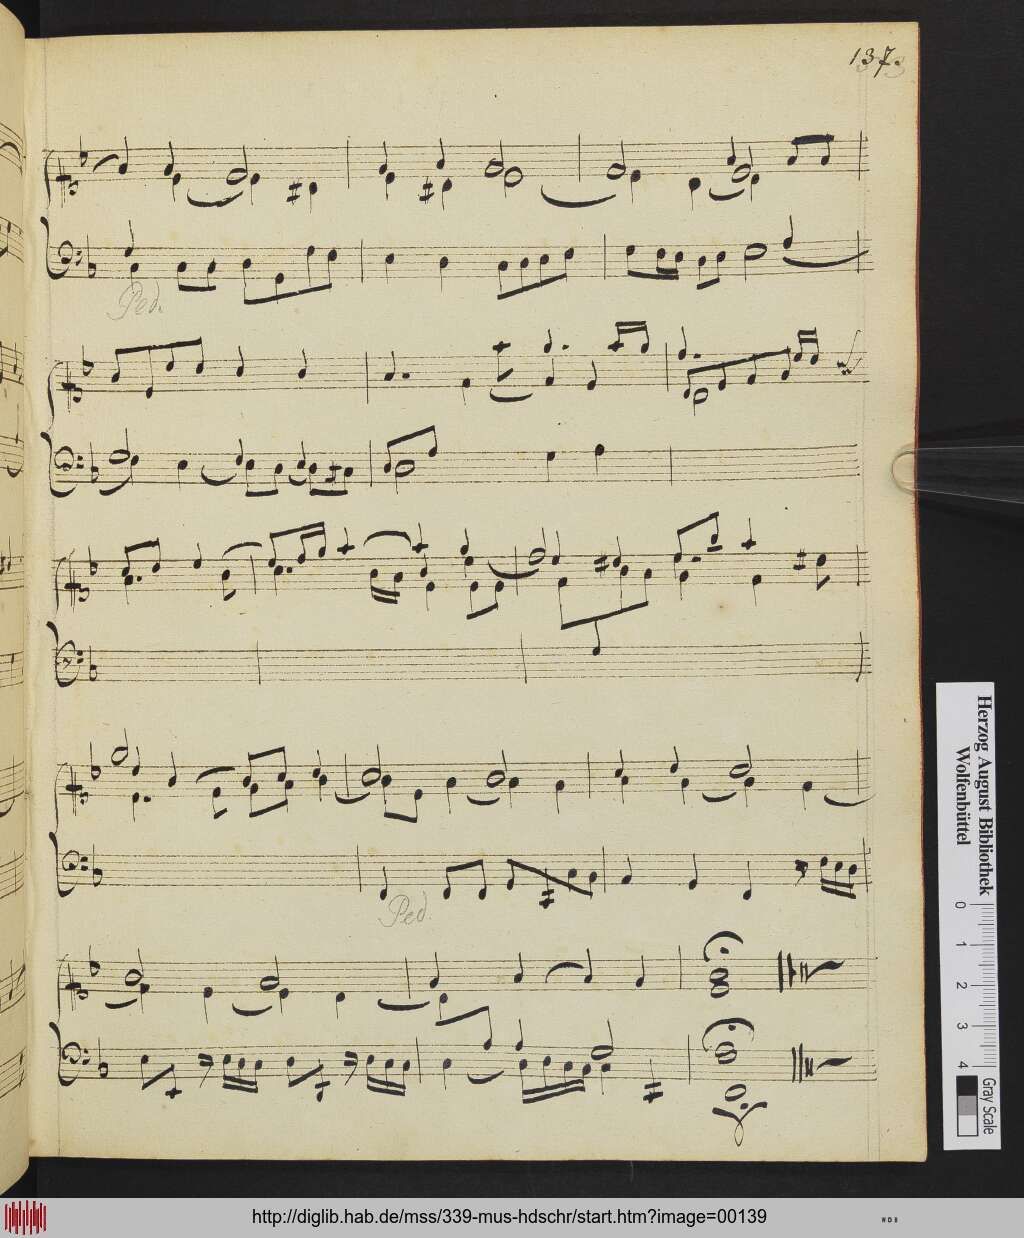 137.
Ped.
Ped.
Herzog August Bibliothek
Wolfenbüttel
0 1 2 3 4
Gray Scale
http://diglib.hab.de/mss/339-mus-hdschr/start.htm?image=00139